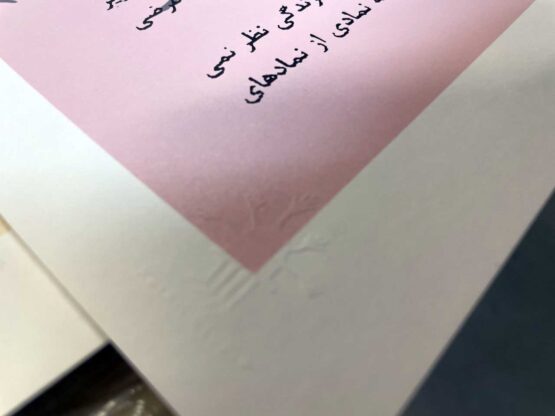 زندگی نظر نمی
نمادی از نمادهای